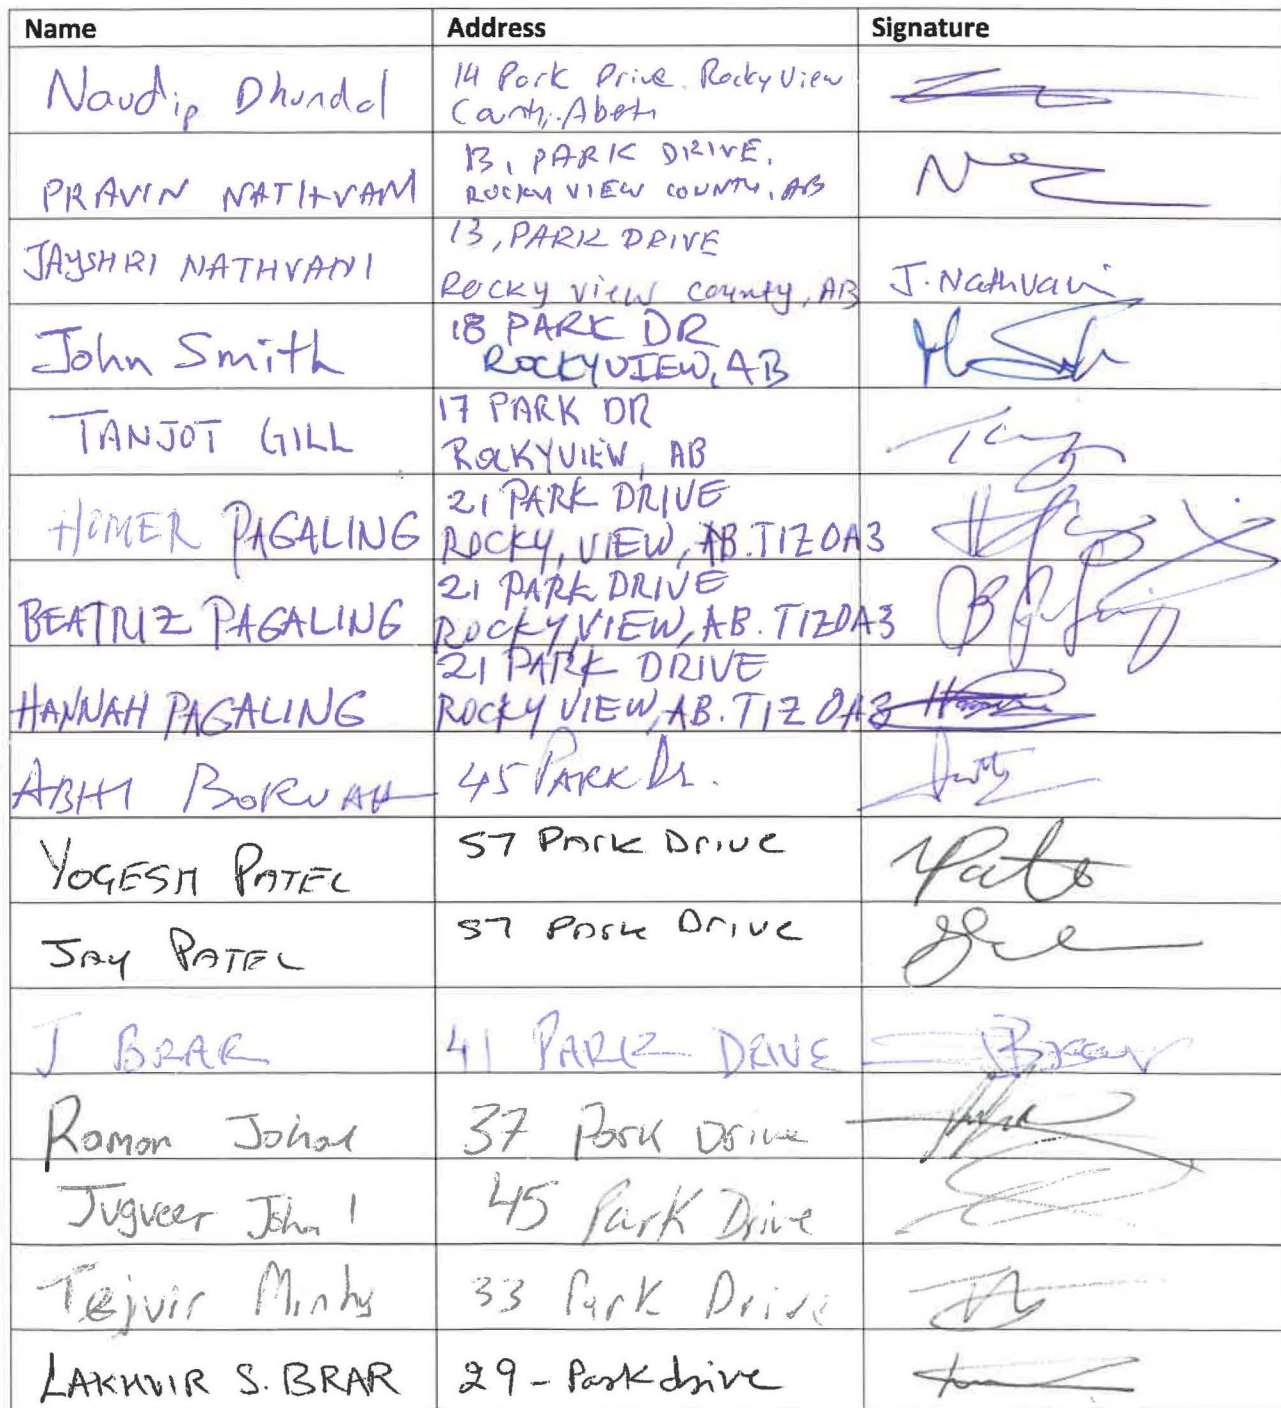 Name Address Signature
Navdip Dhundal 14 Park Drive. Rocky View
County,
PRAVIN NATHVANI 13, PARK DRIVE,
ROCKY VIEW COUNTY, AB
JAYSHRI NATHVANI 13, PARK DRIVE
ROCKY VIEW COUNTY, AB J. Nathvani
John Smith 18 PARK DR
ROCKYVIEW, AB
TANJOT GILL 17 PARK DR
ROCKYVIEW, AB
HOMER PAGALING 21 PARK DRIVE
ROCKY, VIEW, AB. T1Z0A3
BEATRIZ PAGALING 21 PARK DRIVE
ROCKY, VIEW, AB. T1Z0A3
HANNAH PAGALING 21 PARK DRIVE
ROCKY VIEW, AB. T1Z 0A3
ABHI BORUAH 45 PARK Dr.
YOGESH PATEL 57 Park Drive
JAY PATEL 57 Park Drive
J BRAR 41 PARK DRIVE
Raman Johal 37 Park Drive
Jugveer 45 Park Drive
Tejvir 33 Park Drive
LAKHVIR S. BRAR 29 - Park drive